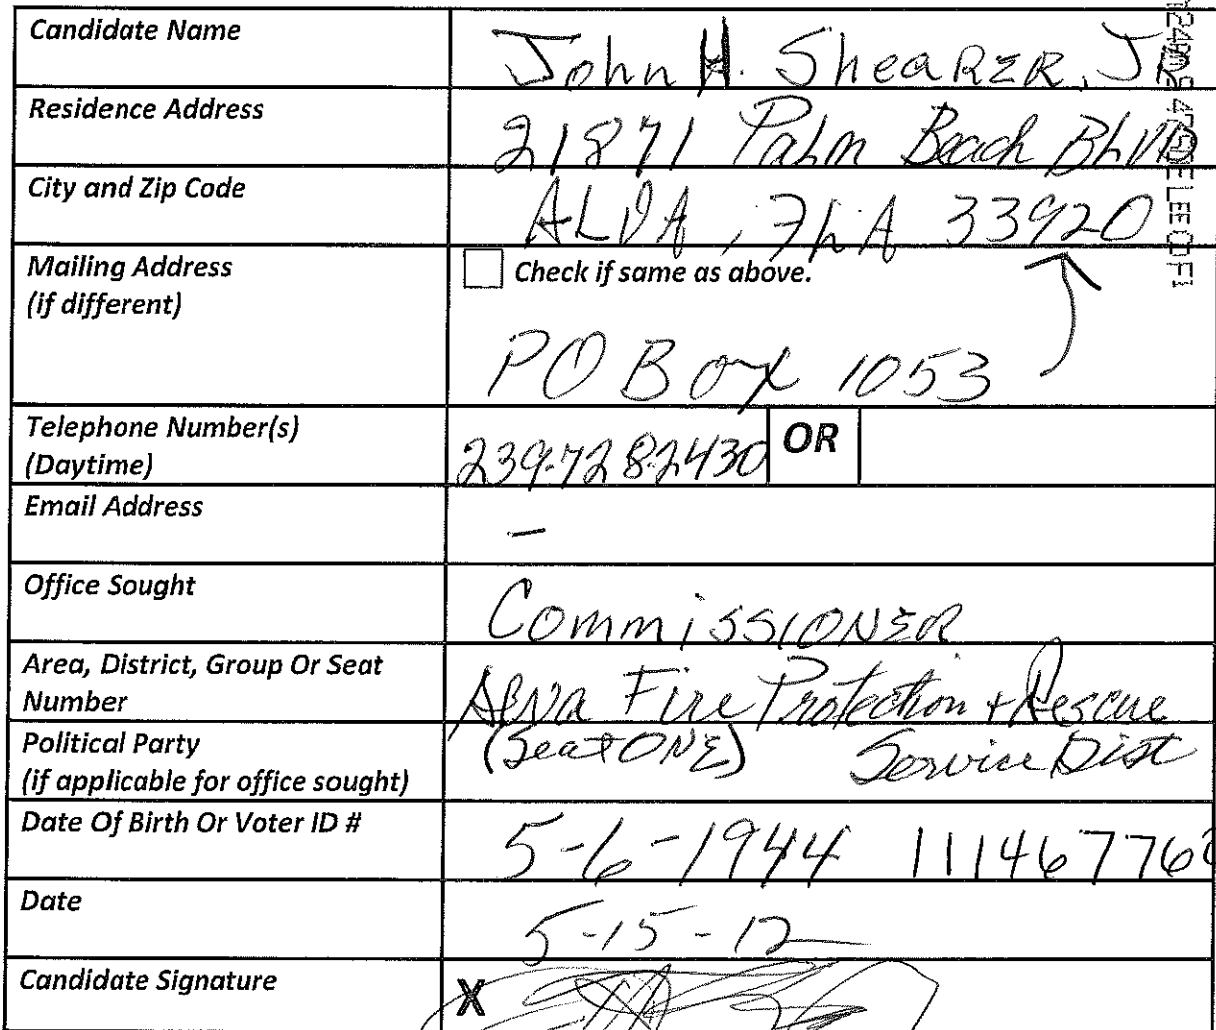 Candidate Name John H. Shearer, Jr
Residence Address 21871 Palm Beach Blvd
City and Zip Code ALVA, FLA 33920
Mailing Address
(if different)
Check if same as above.
PO Box 1053
Telephone Number(s)
(Daytime)
239-728-2430 OR
Email Address -
Office Sought Commissioner
Area, District, Group Or Seat
Number
Alva Fire Protection + Rescue
Political Party
(if applicable for office sought)
(Seat ONE) Service Dist
Date Of Birth Or Voter ID # 5-6-1944 11146776
Date 5-15-12
Candidate Signature X